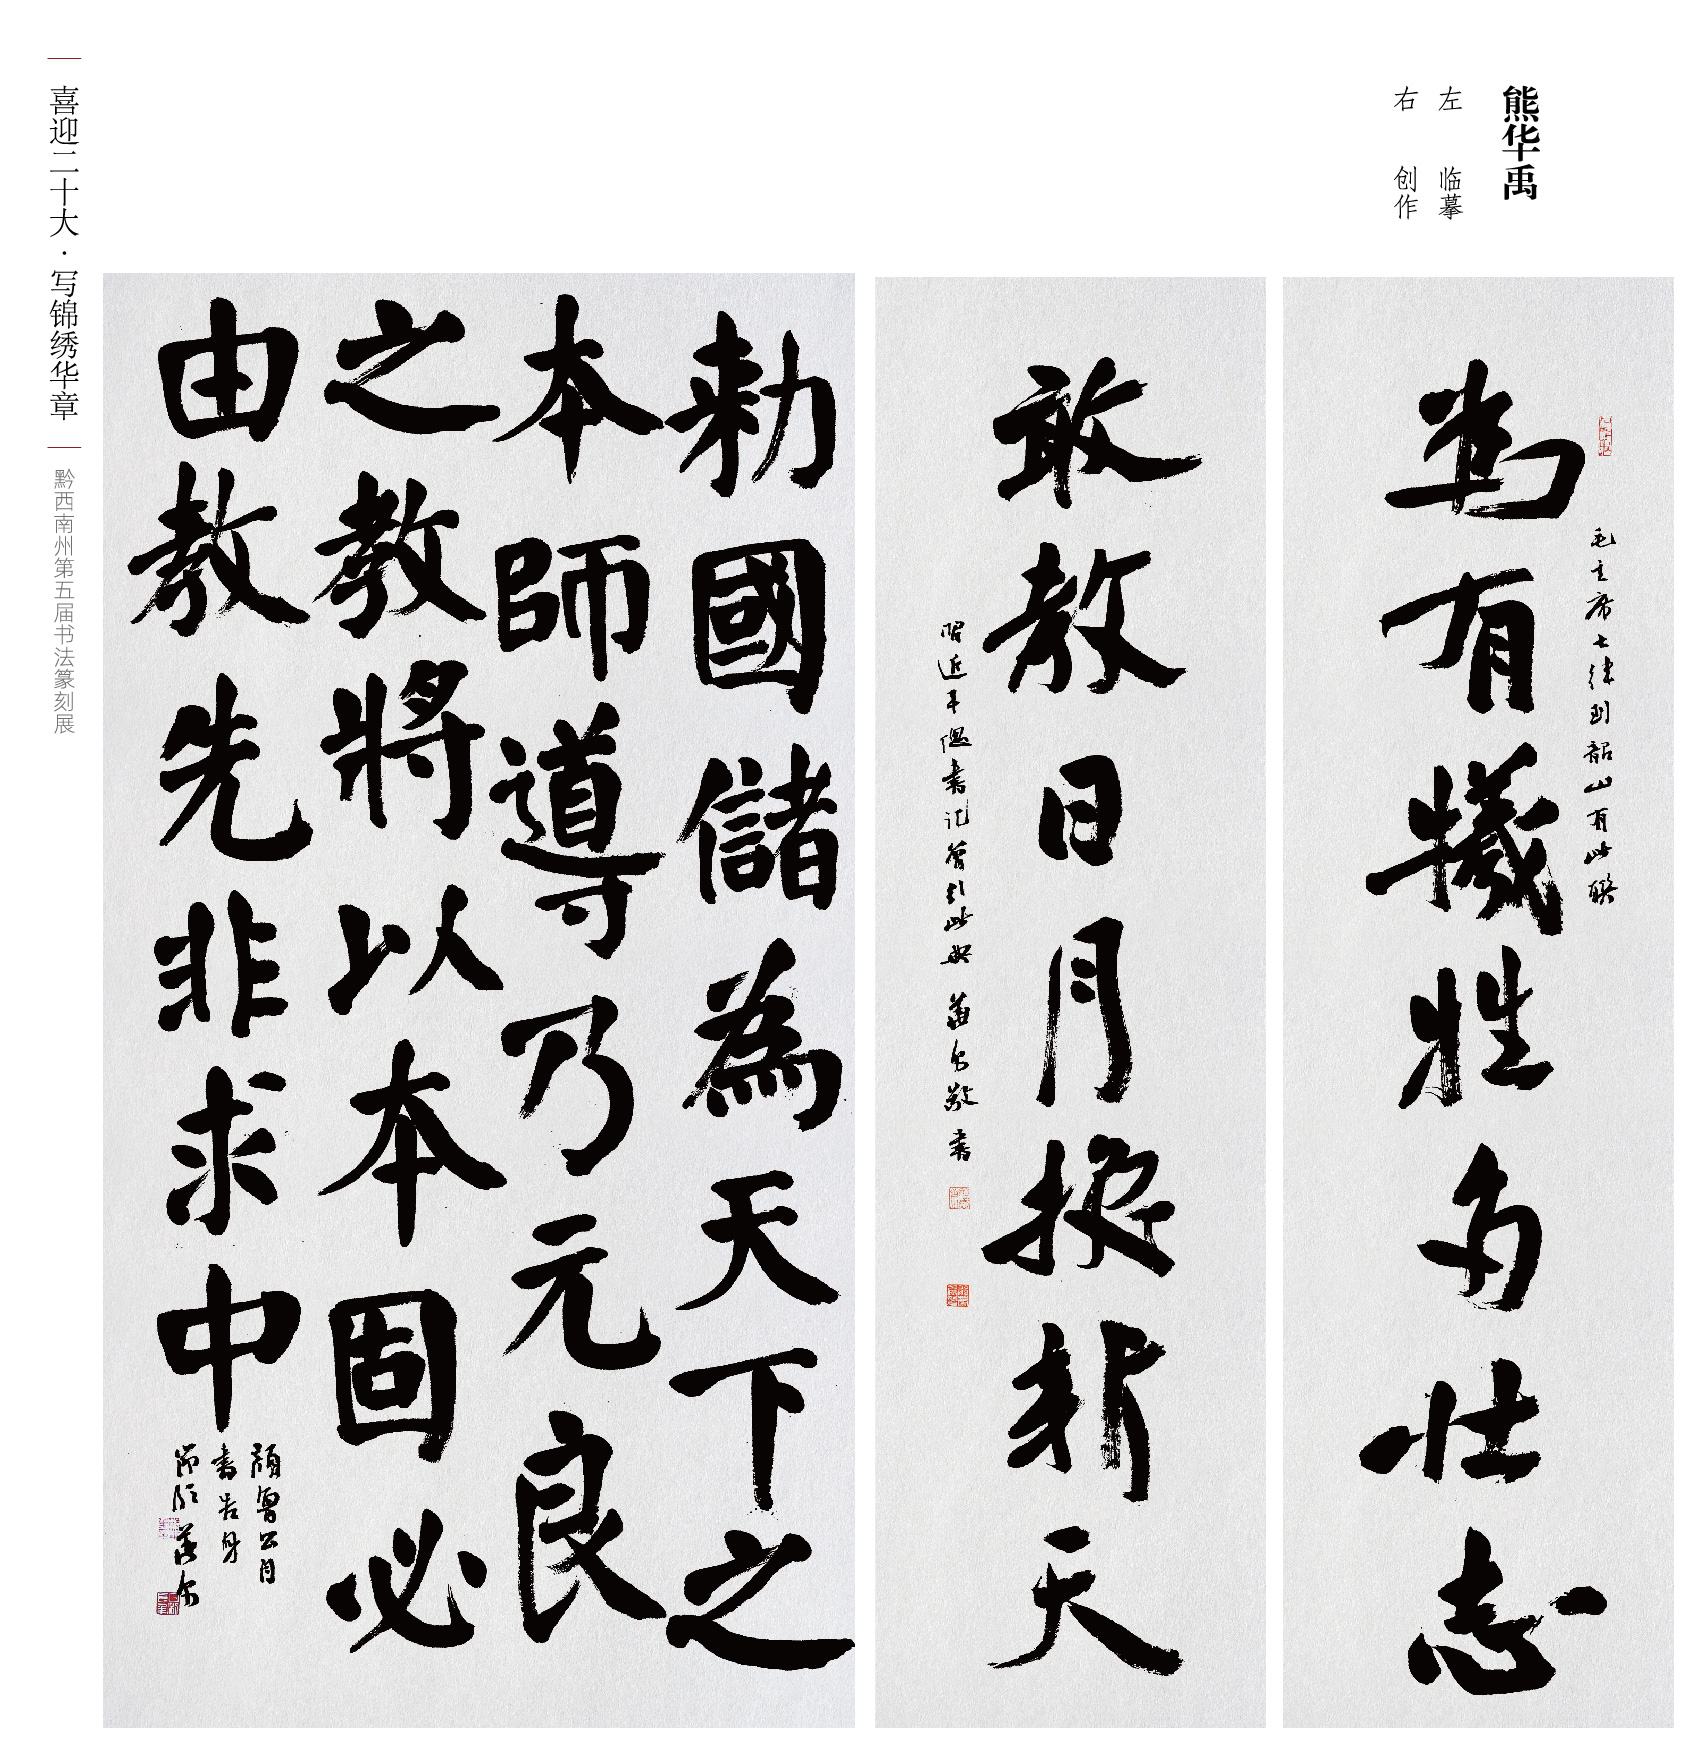 熊华禹
左 临摹
右 创作
为有牺牲多壮志
毛主席七律到韶山有此联
敢教日月换新天
习近平总书记曾引此典 敬书
勅國儲為天下之
本師導乃元良
之教將以本固必
由教先非求中
顏魯公自
書告身
節臨
喜迎二十大·写锦绣华章
黔西南州第五届书法篆刻展